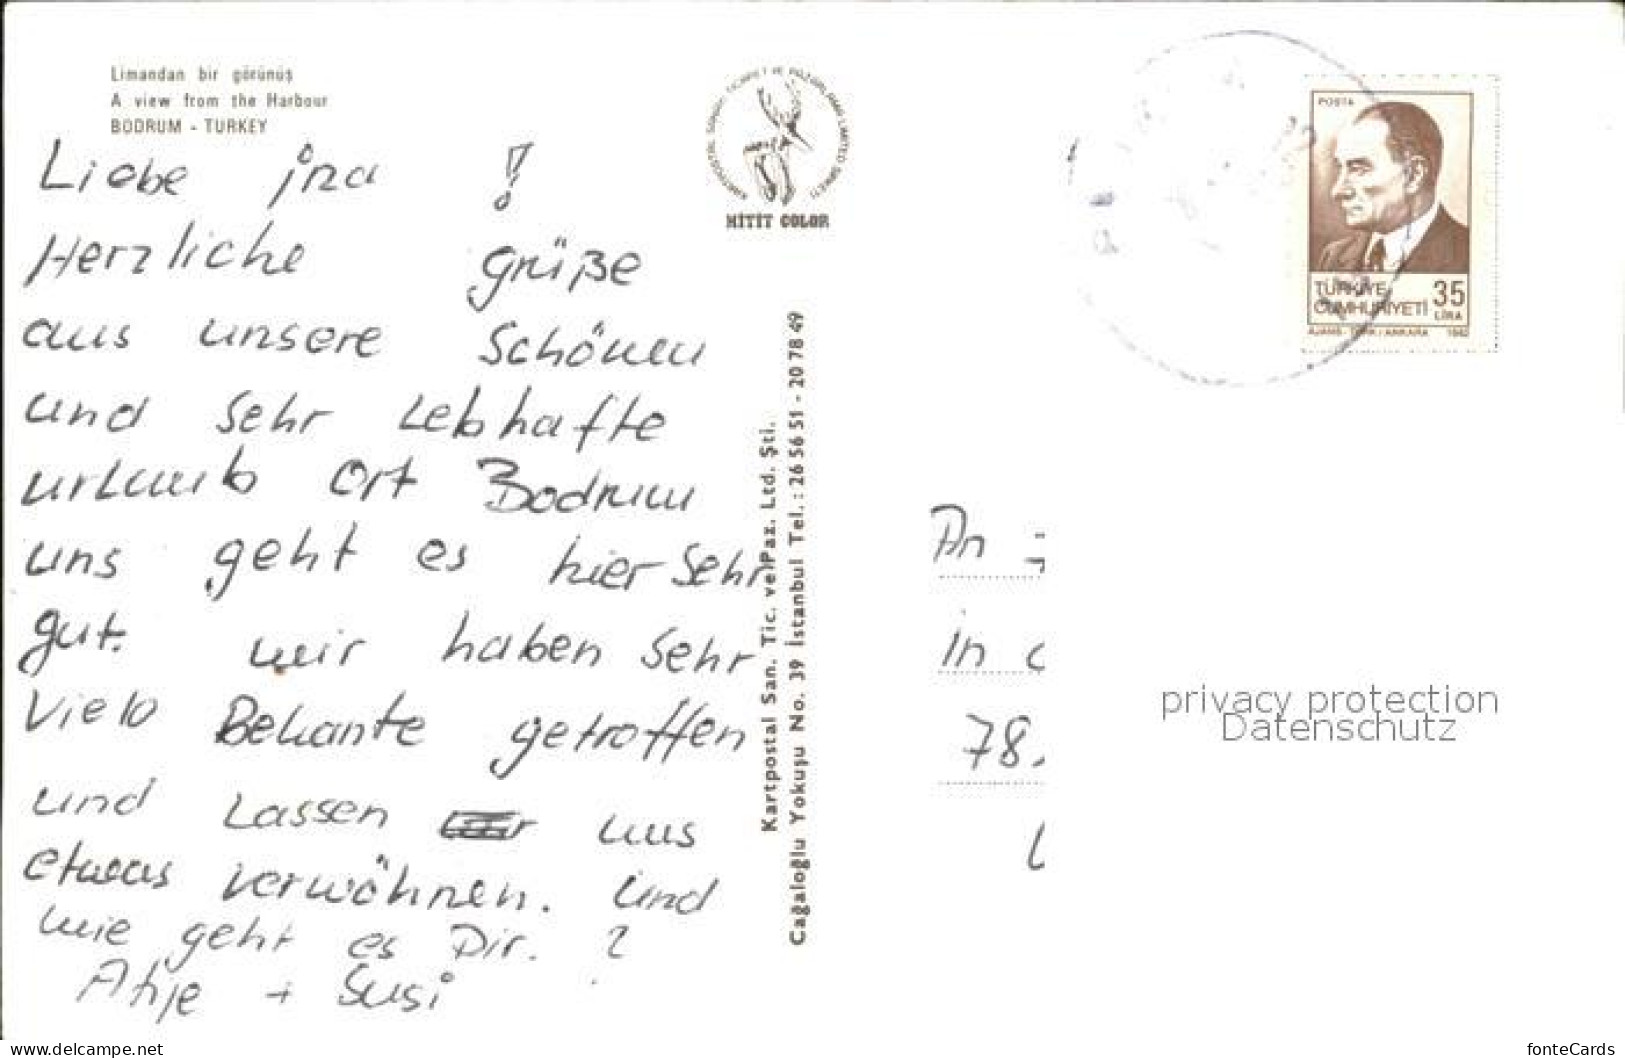 Limandan bir görünüş
A view from the Harbour
BODRUM - TURKEY
Liebe ina !
Herzliche grüße
aus unsere Schönen
und sehr Lebhafte
urlaub ort Bodrum
uns geht es hier sehr
gut. wir haben sehr
viele Bekante getroffen
und Lassen uns
etwas verwöhnen. und
wie geht es Dir. ?
Atije + Susi
KARTPOSTAL SANAYİ TİCARET VE PAZARLAMA LIMITED ŞİRKETİ
HİTİT COLOR
Kartpostal San. Tic. ve Paz. Ltd. Şti.
Cağaloğlu Yokuşu No. 39 İstanbul Tel. : 26 56 51 - 20 78 49
POSTA
TÜRKİYE
CUMHURİYETİ 35
LİRA
AJANS - TÜRK / ANKARA 1982
An
in
78
privacy protection
Datenschutz
www.delcampe.net
fonteCards